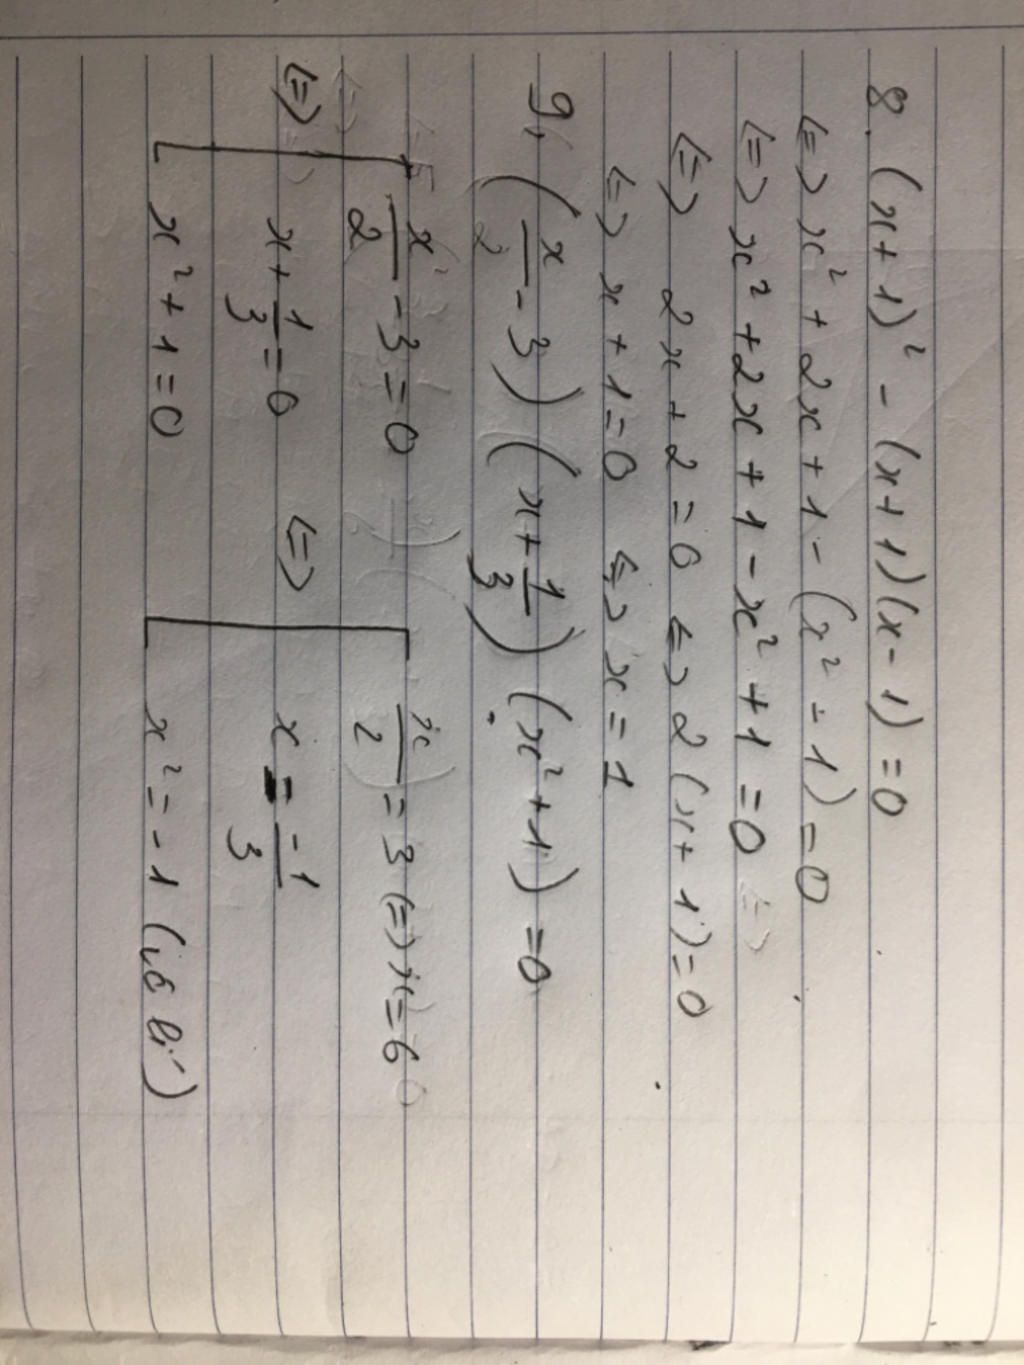 8. (x+1)² - (x+1)(x-1) = 0
<=> x² + 2x + 1 - (x² - 1) = 0
<=> x² + 2x + 1 - x² + 1 = 0
<=> 2x + 2 = 0 <=> 2(x+1) = 0
<=> x + 1 = 0 <=> x = 1
9, (x/2 - 3)(x + 1/3)(x² + 1) = 0
x/2 - 3 = 0 x/2 = 3 <=> x = 6
<=> x + 1/3 = 0 <=> x = -1/3
x² + 1 = 0 x² = -1 (vô lí)